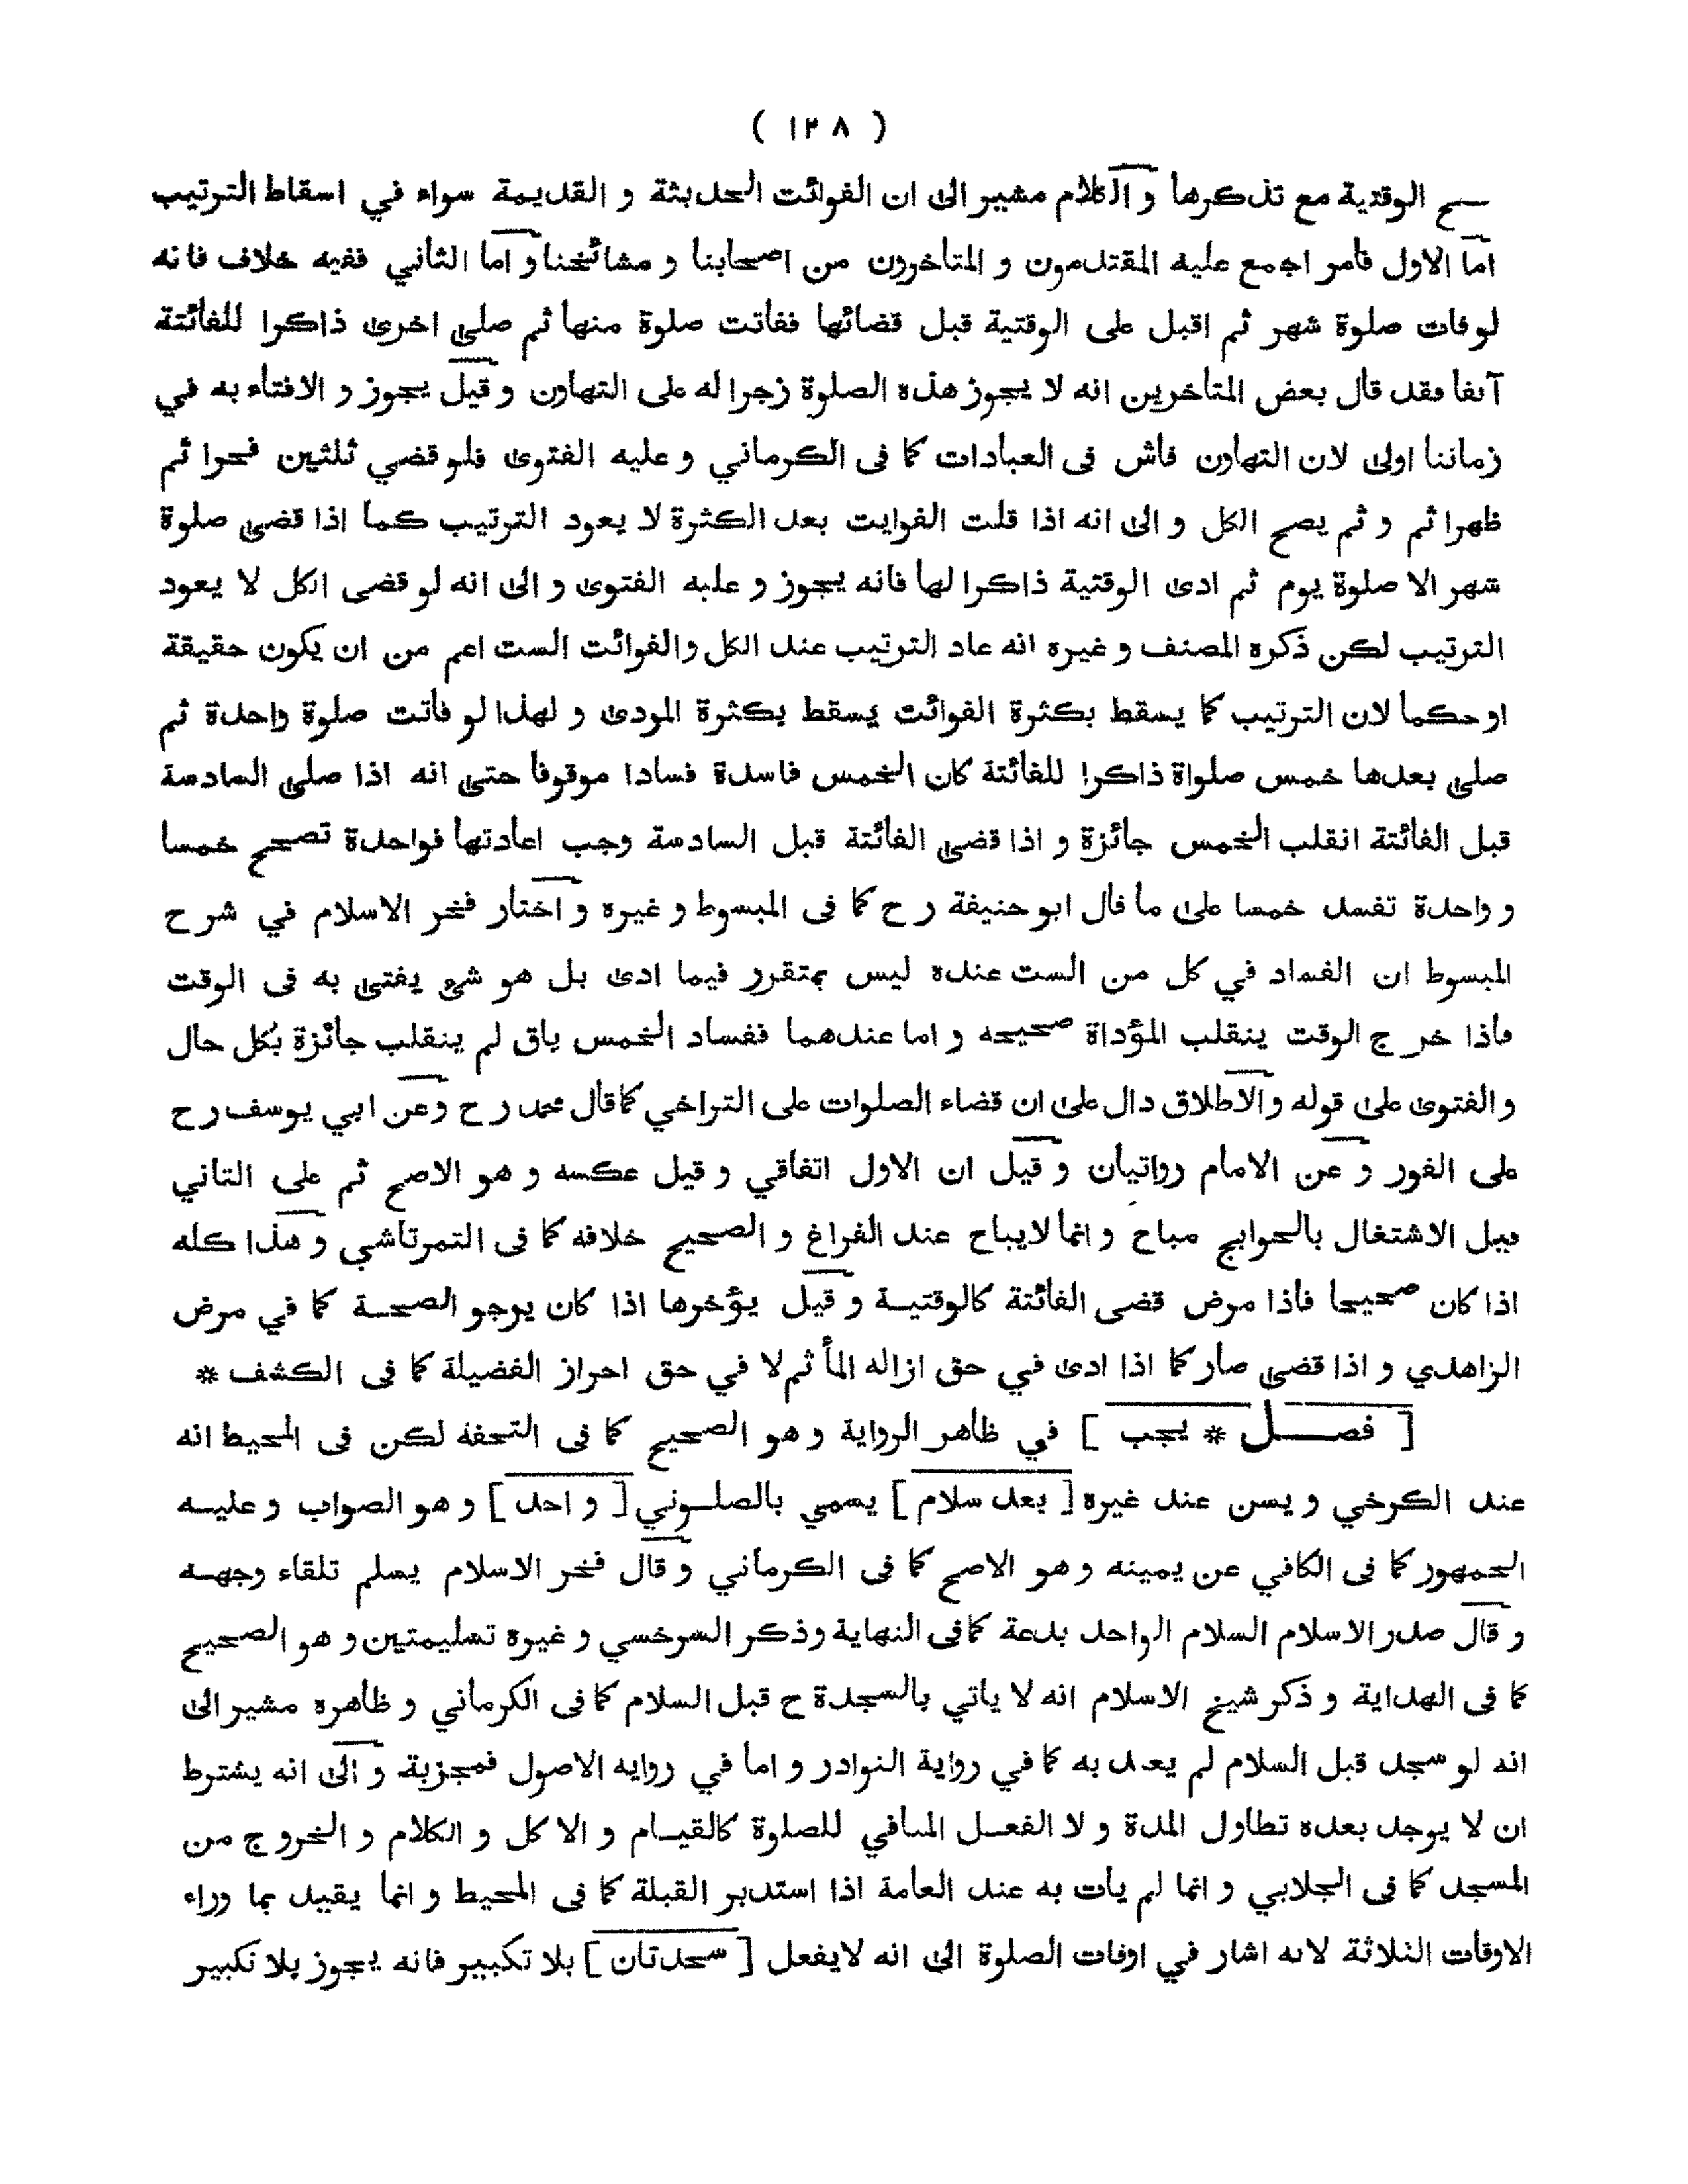 ( ١٢٨ )
ـــح الوقتية مع تذكرها و الكلام مشير الى ان الفوائت الحديثة و القديمة سواء في اسقاط الترتيب
اما الاول فامر اجمع عليه المقتدمون و المتاخرون من اصحابنا و مشائخنا و اما الثاني ففيه خلاف فانه
لو فات صلوة شهر ثم اقبل على الوقتية قبل قضائها ففاتت صلوة منها ثم صلى اخرى ذاكرا للفائتة
آنفا فقد قال بعض المتاخرين انه لا يجوز هذه الصلوة زجرا له على التهاون و قيل يجوز و الافتاء به في
زماننا اولى لان التهاون فاش فى العبادات كما فى الكرماني و عليه الفتوى فلو قضي ثلثين فجرا ثم
ظهرا ثم و ثم يصح الكل و الى انه اذا قلت الفوايت بعد الكثرة لا يعود الترتيب كما اذا قضى صلوة
شهر الا صلوة يوم ثم ادى الوقتية ذاكرا لها فانه يجوز و عليه الفتوى و الى انه لو قضى الكل لا يعود
الترتيب لكن ذكره المصنف و غيره انه عاد الترتيب عند الكل والفوائت الست اعم من ان يكون حقيقة
او حكما لان الترتيب كما يسقط بكثرة الفوائت يسقط بكثرة المودى و لهذا لو فاتت صلوة واحدة ثم
صلى بعدها خمس صلواة ذاكرا للفائتة كان الخمس فاسدة فسادا موقوفا حتى انه اذا صلى السادسة
قبل الفائتة انقلب الخمس جائزة و اذا قضى الفائتة قبل السادسة وجب اعادتها فواحدة تصحح خمسا
و واحدة تفسد خمسا على ما قال ابو حنيفة رح كما فى المبسوط و غيره و اختار فخر الاسلام في شرح
المبسوط ان الفساد في كل من الست عنده ليس بمتقرر فيما ادى بل هو شئ يفتى به فى الوقت
فاذا خرج الوقت ينقلب المؤداة صحيحه و اما عندهما ففساد الخمس باق لم ينقلب جائزة بكل حال
و الفتوى على قوله و الاطلاق دال على ان قضاء الصلوات على التراخي كما قال محمد رح و عن ابي يوسف رح
على الفور و عن الامام رواتيان و قيل ان الاول اتفاقي و قيل عكسه و هو الاصح ثم على الثاني
قيل الاشتغال بالحوايج مباح و انما لايباح عند الفراغ و الصحيح خلافه كما فى التمرتاشي و هذا كله
اذا كان صحيحا فاذا مرض قضى الفائتة كالوقتيـــة و قيل يؤخرها اذا كان يرجو الصحـــة كما في مرض
الزاهدي و اذا قضى صار كما اذا ادى في حق ازاله المأ ثم لا في حق احراز الفضيلة كما فى الكشف *
[ فصـــل * يجب ] في ظاهر الرواية و هو الصحيح كما فى التحفة لكن فى المحيط انه
عند الكرخي و يسن عند غيره [ بعد سلام ] يسمي بالصلـوني [ و احد ] و هو الصواب و عليـــه
الجمهور كما فى الكافي عن يمينه و هو الاصح كما فى الكرماني و قال فخر الاسلام يسلم تلقاء وجهـــه
و قال صدر الاسلام السلام الواحد بدعة كما فى النهاية و ذكر السرخسي و غيره تسليمتين و هو الصحيح
كما فى الهداية و ذكر شيخ الاسلام انه لا ياتي بالسجدة ح قبل السلام كما فى الكرماني و ظاهره مشير الى
انه لو سجد قبل السلام لم يعد به كما في رواية النوادر و اما في روايه الاصول فمجزية و الى انه يشترط
ان لا يوجد بعده تطاول المدة و لا الفعـــل المنافي للصلوة كالقيـــام و الا كل و الكلام و الخروج من
المسجد كما فى الجلابي و انما لم يات به عند العامة اذا استدبر القبلة كما فى المحيط و انما يقيد بما وراء
الاوقات الثلاثة لانه اشار في اوقات الصلوة الى انه لايفعل [ سجدتان ] بلا تكبير فانه يجوز بلا تكبير